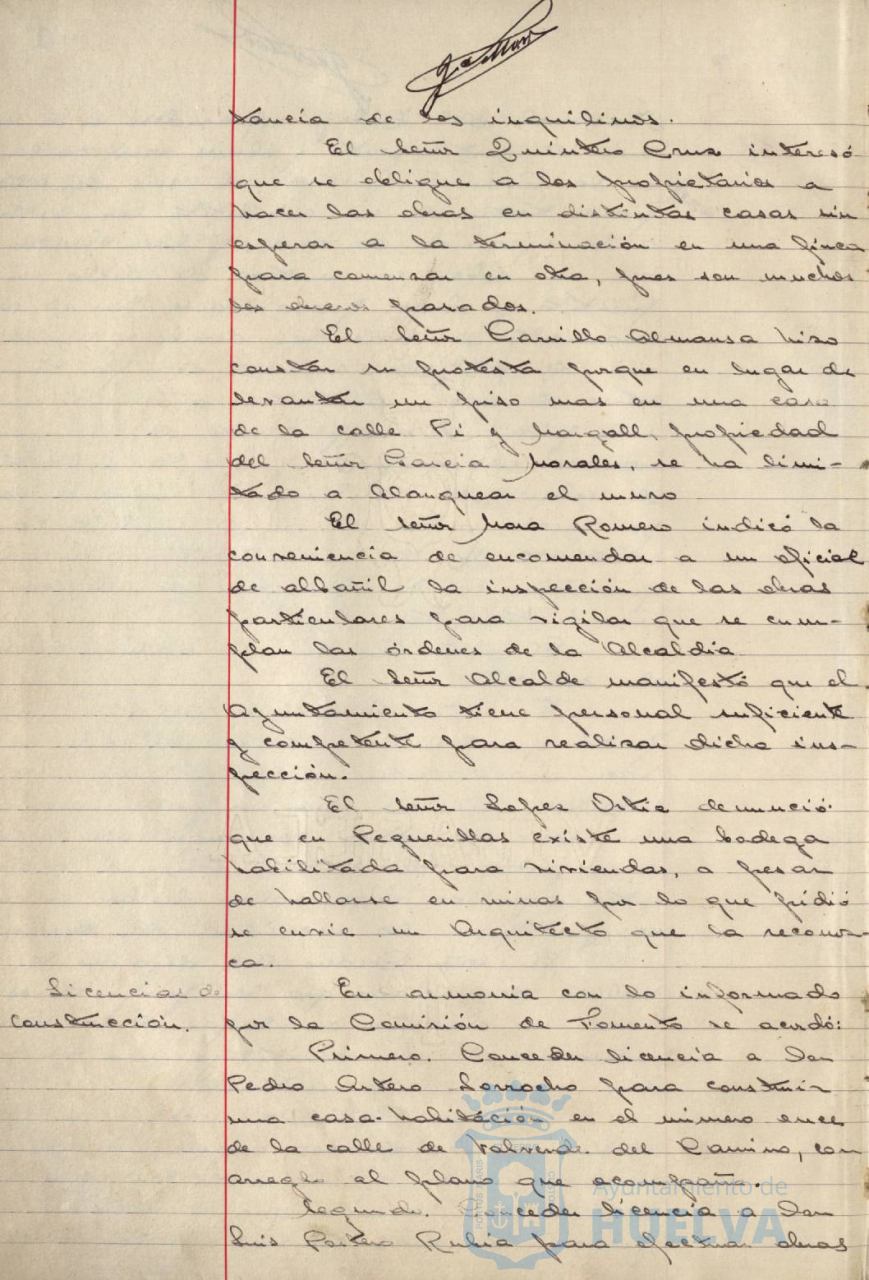 tancia de los inquilinos.
El Señor Quintero Cruz interesó
que se obligue a los propietarios a
hacer las obras en distintas casas sin
esperar a la terminación en una finca
para comenzar en otra, pues son muchos
los obreros parados.
El Señor Carrillo Almansa hizo
constar su protesta porque en lugar de
levantar un piso mas en una casa
de la calle Pi y Margall, propiedad
del Señor García Morales, se ha limi-
tado a blanquear el muro
El Señor Mora Romero indicó la
conveniencia de encomendar a un oficial
de albañil la inspección de las obras
particulares para vigilar que se cum-
plan las órdenes de la Alcaldía
El Señor Alcalde manifestó que el
Ayuntamiento tiene personal suficiente
y competente para realizar dicha ins-
pección.
El Señor Lopez Ortiz denunció
que en Peguerillas existe una bodega
habilitada para viviendas, a pesar
de hallarse en ruinas por lo que pidió
se envie un Arquitecto que la reconoz-
ca.
Licencias de
construcción.
En armonía con lo informado
por la Comisión de Fomento se acordó:
Primero. Conceder licencia a Don
Pedro Antero Lorrocho para construir
una casa-habitación en el número once
de la calle de Valverde del Camino, con
arreglo al plano que acompaña.
Segundo. Conceder licencia a Don
Luis Rubia para efectuar obras
Ayuntamiento de
HUELVA